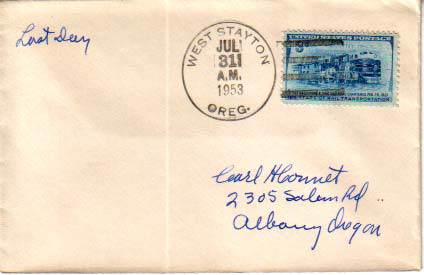 Last Day
WEST STAYTON
JUL
31
A.M.
1953
OREG.
UNITED STATES POSTAGE
OF RAIL TRANSPORTATION
Carl H Connet
2305 Salem Rd
Albany Oregon